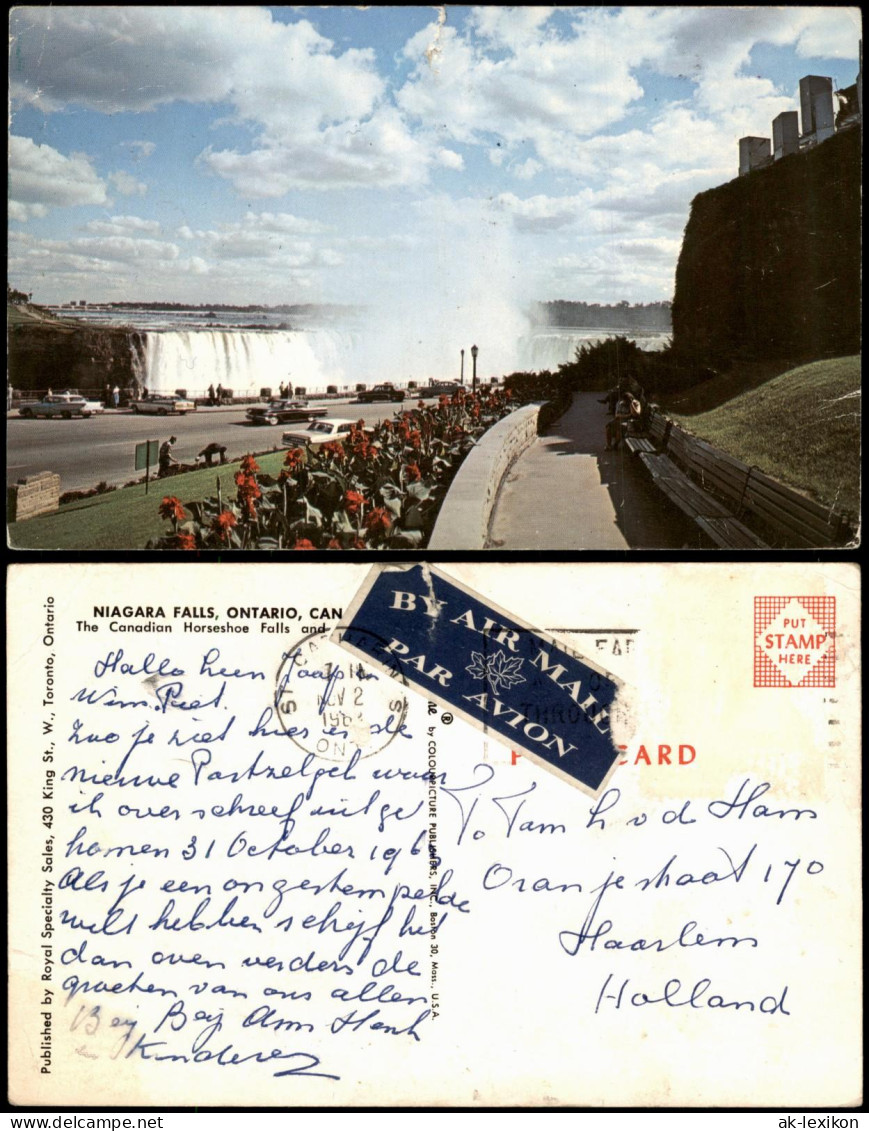 NIAGARA FALLS, ONTARIO, CAN
The Canadian Horseshoe Falls and
Hallo heen Jaap en
Wim. Piet.
Zoo je ziet hier is de
nieuwe Postzelgel waar
ik over schreef uit ge
komen 31 October 196
Als je een ongestempelde
wilt hebben schrijf het
dan even verders de
groeten van ons allen
Bey Ann Henk
Kinderen
Published by Royal Specialty Sales, 430 King St., W., Toronto, Ontario
ST. CATHARINES
NOV 2
ONT.
BY AIR MAIL
PAR AVION
by COLOURPICTURE PUBLISHERS, INC., Boston 30, Mass., U.S.A.
PUT
STAMP
HERE
CARD
To Fam h v d Ham
Oranjestraat 170
Haarlem
Holland
delcampe.net
ak-lexikon